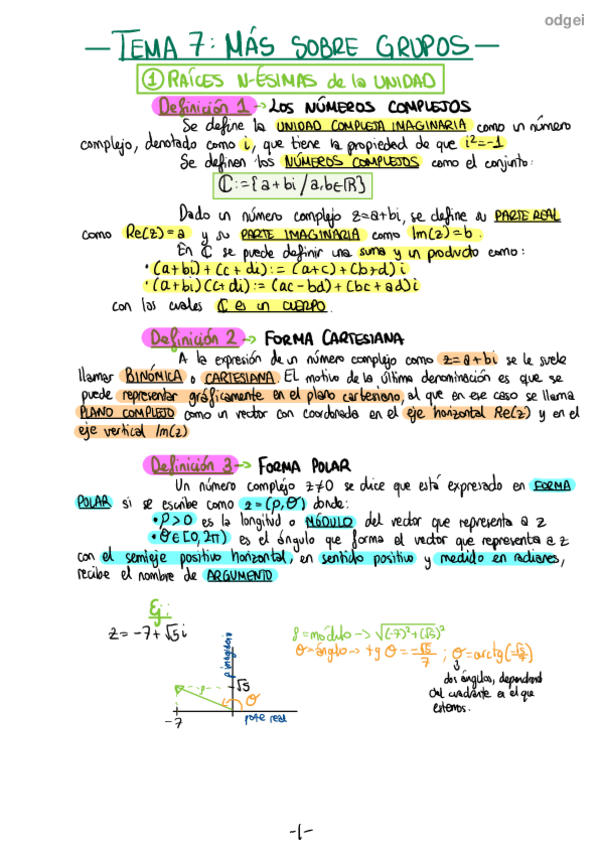 odgei
— TEMA 7: MÁS SOBRE GRUPOS —
① RAÍCES N-ÉSIMAS de la UNIDAD
Definición 1 → LOS NÚMEROS COMPLEJOS
Se define la UNIDAD COMPLEJA IMAGINARIA como un número
complejo, denotado como i, que tiene la propiedad de que i²=-1
Se definen los NÚMEROS COMPLEJOS como el conjunto:
ℂ:={a+bi / a,b∈ℝ}
Dado un número complejo z=a+bi, se define su PARTE REAL
como Re(z)=a y su PARTE IMAGINARIA como Im(z)=b.
En ℂ se puede definir una suma y un producto como:
• (a+bi)+(c+di):= (a+c)+(b+d)i
• (a+bi)(c+di):= (ac-bd)+(bc+ad)i
con las cuales ℂ es un CUERPO.
Definición 2 → FORMA CARTESIANA
A la expresión de un número complejo como z=a+bi se le suele
llamar BINÓMICA o CARTESIANA. El motivo de la última denominación es que se
puede representar gráficamente en el plano cartesiano, al que en ese caso se llama
PLANO COMPLEJO como un vector con coordenada en el eje horizontal Re(z) y en el
eje vertical Im(z)
Definición 3 → FORMA POLAR
Un número complejo z≠0 se dice que está expresado en FORMA
POLAR si se escribe como z=(ρ,θ) donde:
• ρ>0 es la longitud o MÓDULO del vector que representa a z
• θ∈[0,2π) es el ángulo que forma el vector que representa a z
con el semieje positivo horizontal, en sentido positivo y medido en radianes,
recibe el nombre de ARGUMENTO
Ej:
z=-7+√5i
ρ=módulo→ √(-7)²+(√5)²
θ=ángulo→ tg θ=-√5/7 ; θ=arctg(-√5/7)
dos ángulos, dependiendo
del cuadrante en el que
estemos.
p imaginaria
√5
ρ
θ
-7
parte real
-1-